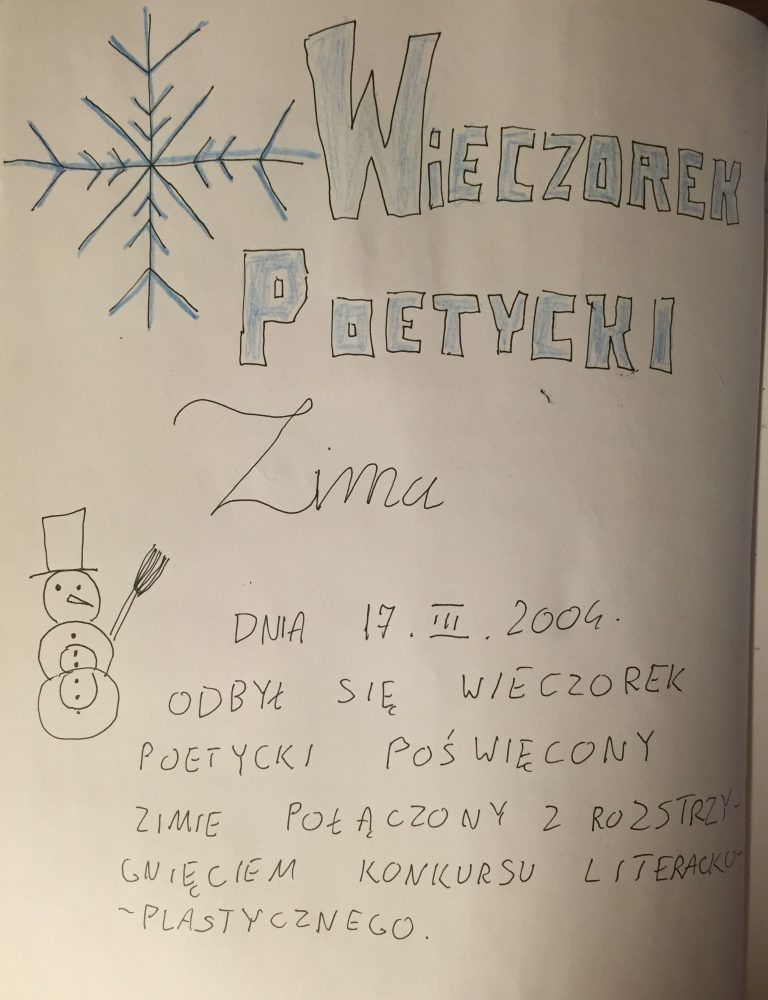 WIECZOREK
POETYCKI
Zima
DNIA 17.III.2004.
ODBYŁ SIĘ WIECZOREK
POETYCKI POŚWIĘCONY
ZIMIE POŁĄCZONY Z ROZSTRZY-
GNIĘCIEM KONKURSU LITERACKO-
-PLASTYCZNEGO.